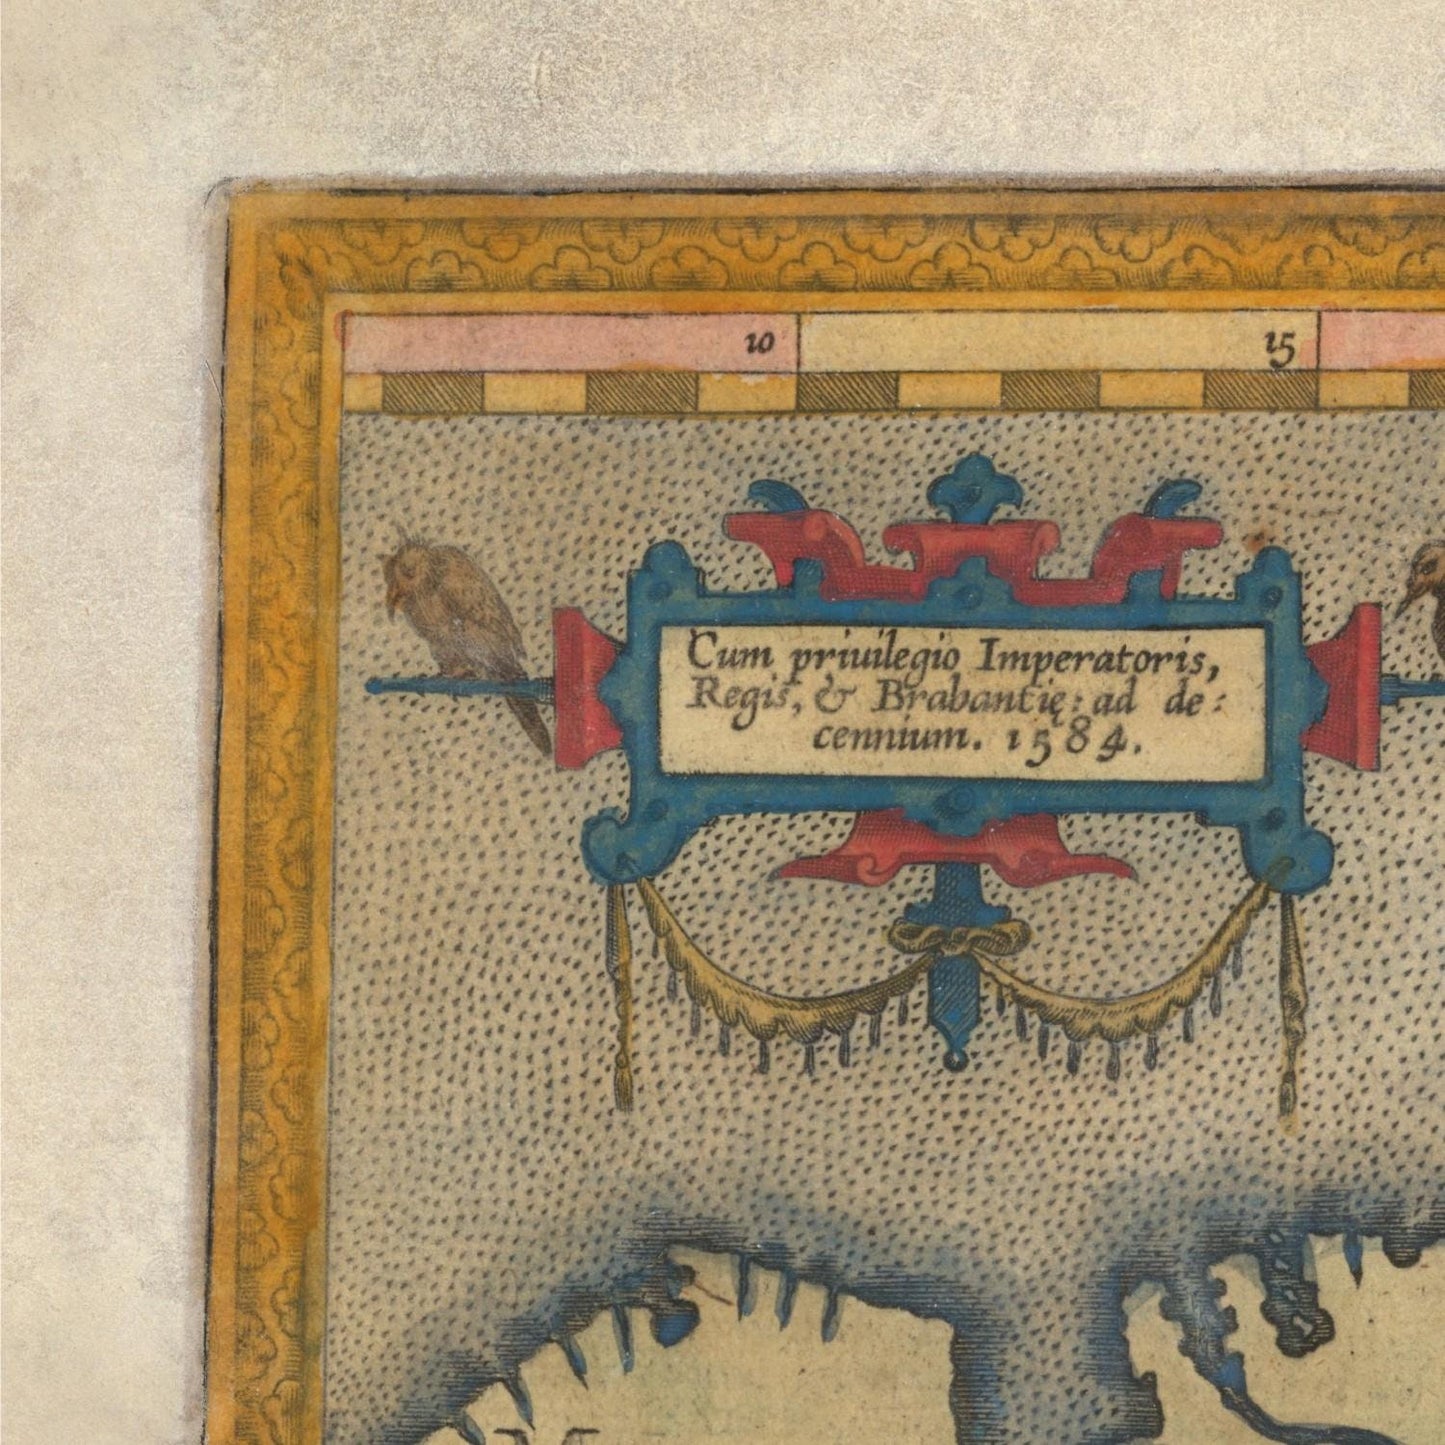 10
15
Cum priuilegio Imperatoris,
Regis, & Brabantię: ad de:
cennium. 1584.